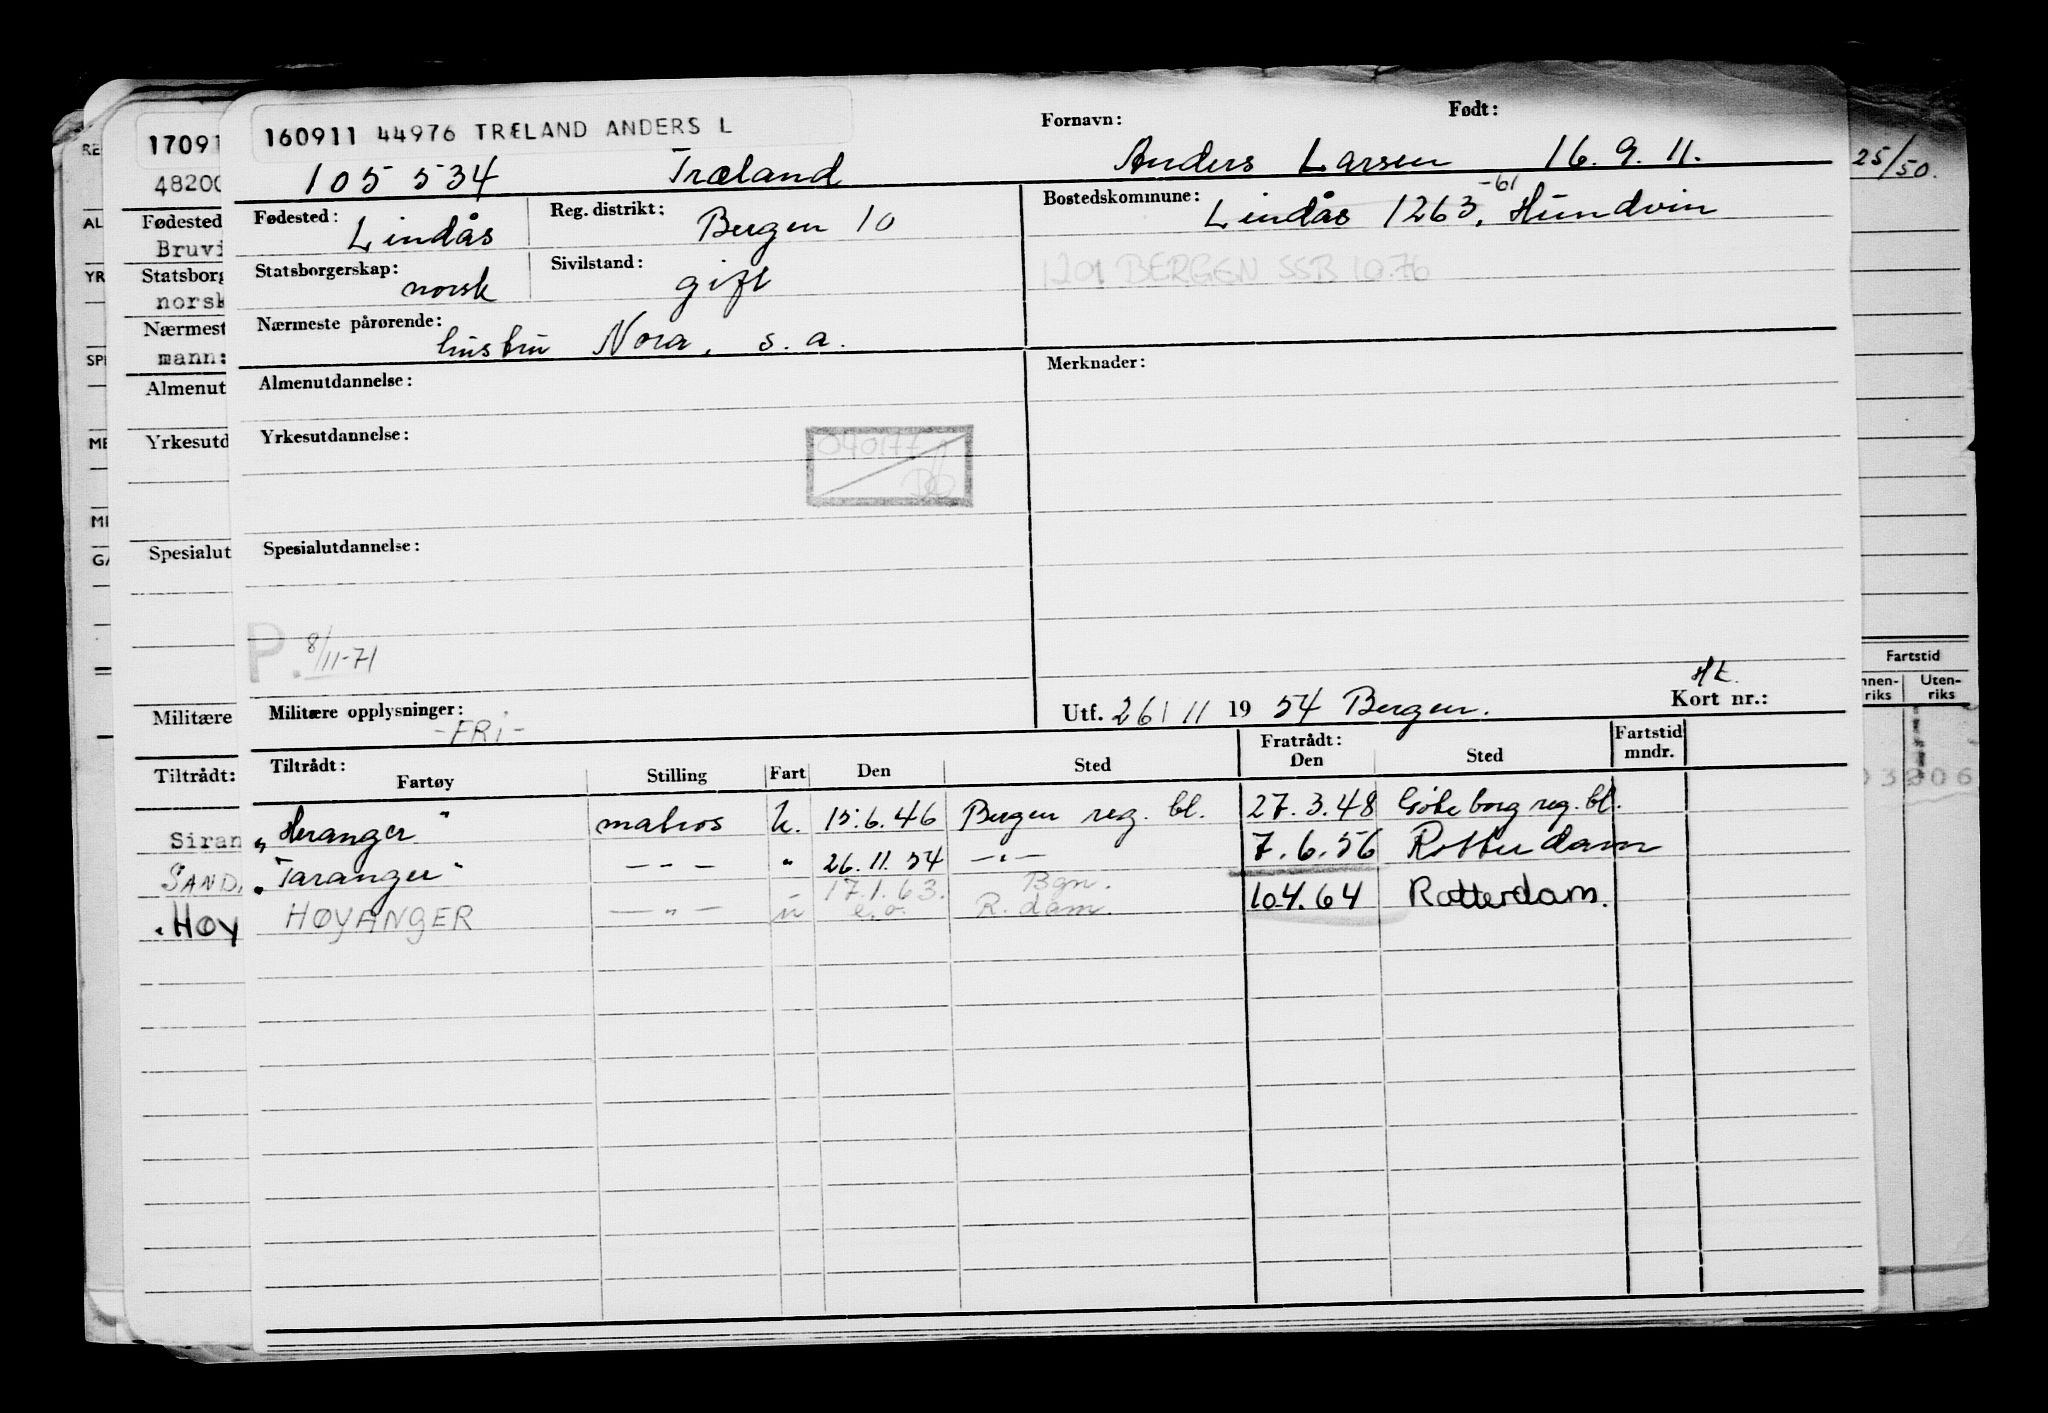 160911 44976 TRÆLAND ANDERS L
Fornavn: Født:
105 534 Træland Anders Larsen 16. 9. 11.
Fødested: Lindås Reg. distrikt: Bergen 10 Bostedskommune: Lindås 1263 -61, Hundvin
Statsborgerskap: norsk Sivilstand: gift
1201 BERGEN SSB 1076
Nærmeste pårørende: hustru Nora, s. a.
Almenutdannelse: Merknader:
Yrkesutdannelse:
040177
Spesialutdannelse:
P. 8/11-71
Militære opplysninger: -FRI- Utf. 26/11 1954 Bergen. Kort nr.:
Tiltrådt: Fratrådt: Fartstid
Fartøy Stilling Fart Den Sted Den Sted mndr.
"Heranger" matros u. 15.6.46 Bergen reg. bl. 27.3.48 Göteborg reg. bl.
"Taranger" — " — " 26.11.54 — " — 7.6.56 Rotterdam
17.1.63. Bgn.
HØYANGER — " — u e.o. R.dam. 10.4.64 Rotterdam.
17091
48200
Fødested
Bruvi
Statsborg
norsk
Nærmest
mann:
Almenut
Yrkesutd
Spesialut
Militære
Tiltrådt:
Siran
SAND.
HØY
RE
AL
YR
SPE
ME
MI
GA
25/50.
Fartstid
nnen-riks Uten-riks
03206